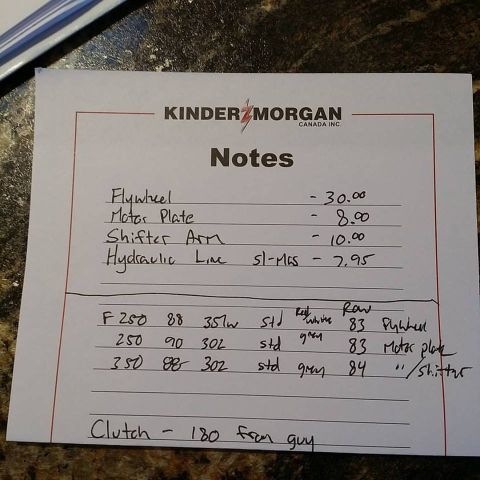 KINDER MORGAN
CANADA INC.
Notes
Flywheel - 30.00
Motor Plate - 8.00
Shifter Arm - 10.00
Hydraulic Line sl-Mas - 7.95
Row
F250 88 351w std Red/white 83 Flywheel
250 90 302 std grey 83 Motor plate
350 88 302 std grey 84 "/shifter
Clutch - 180 from guy